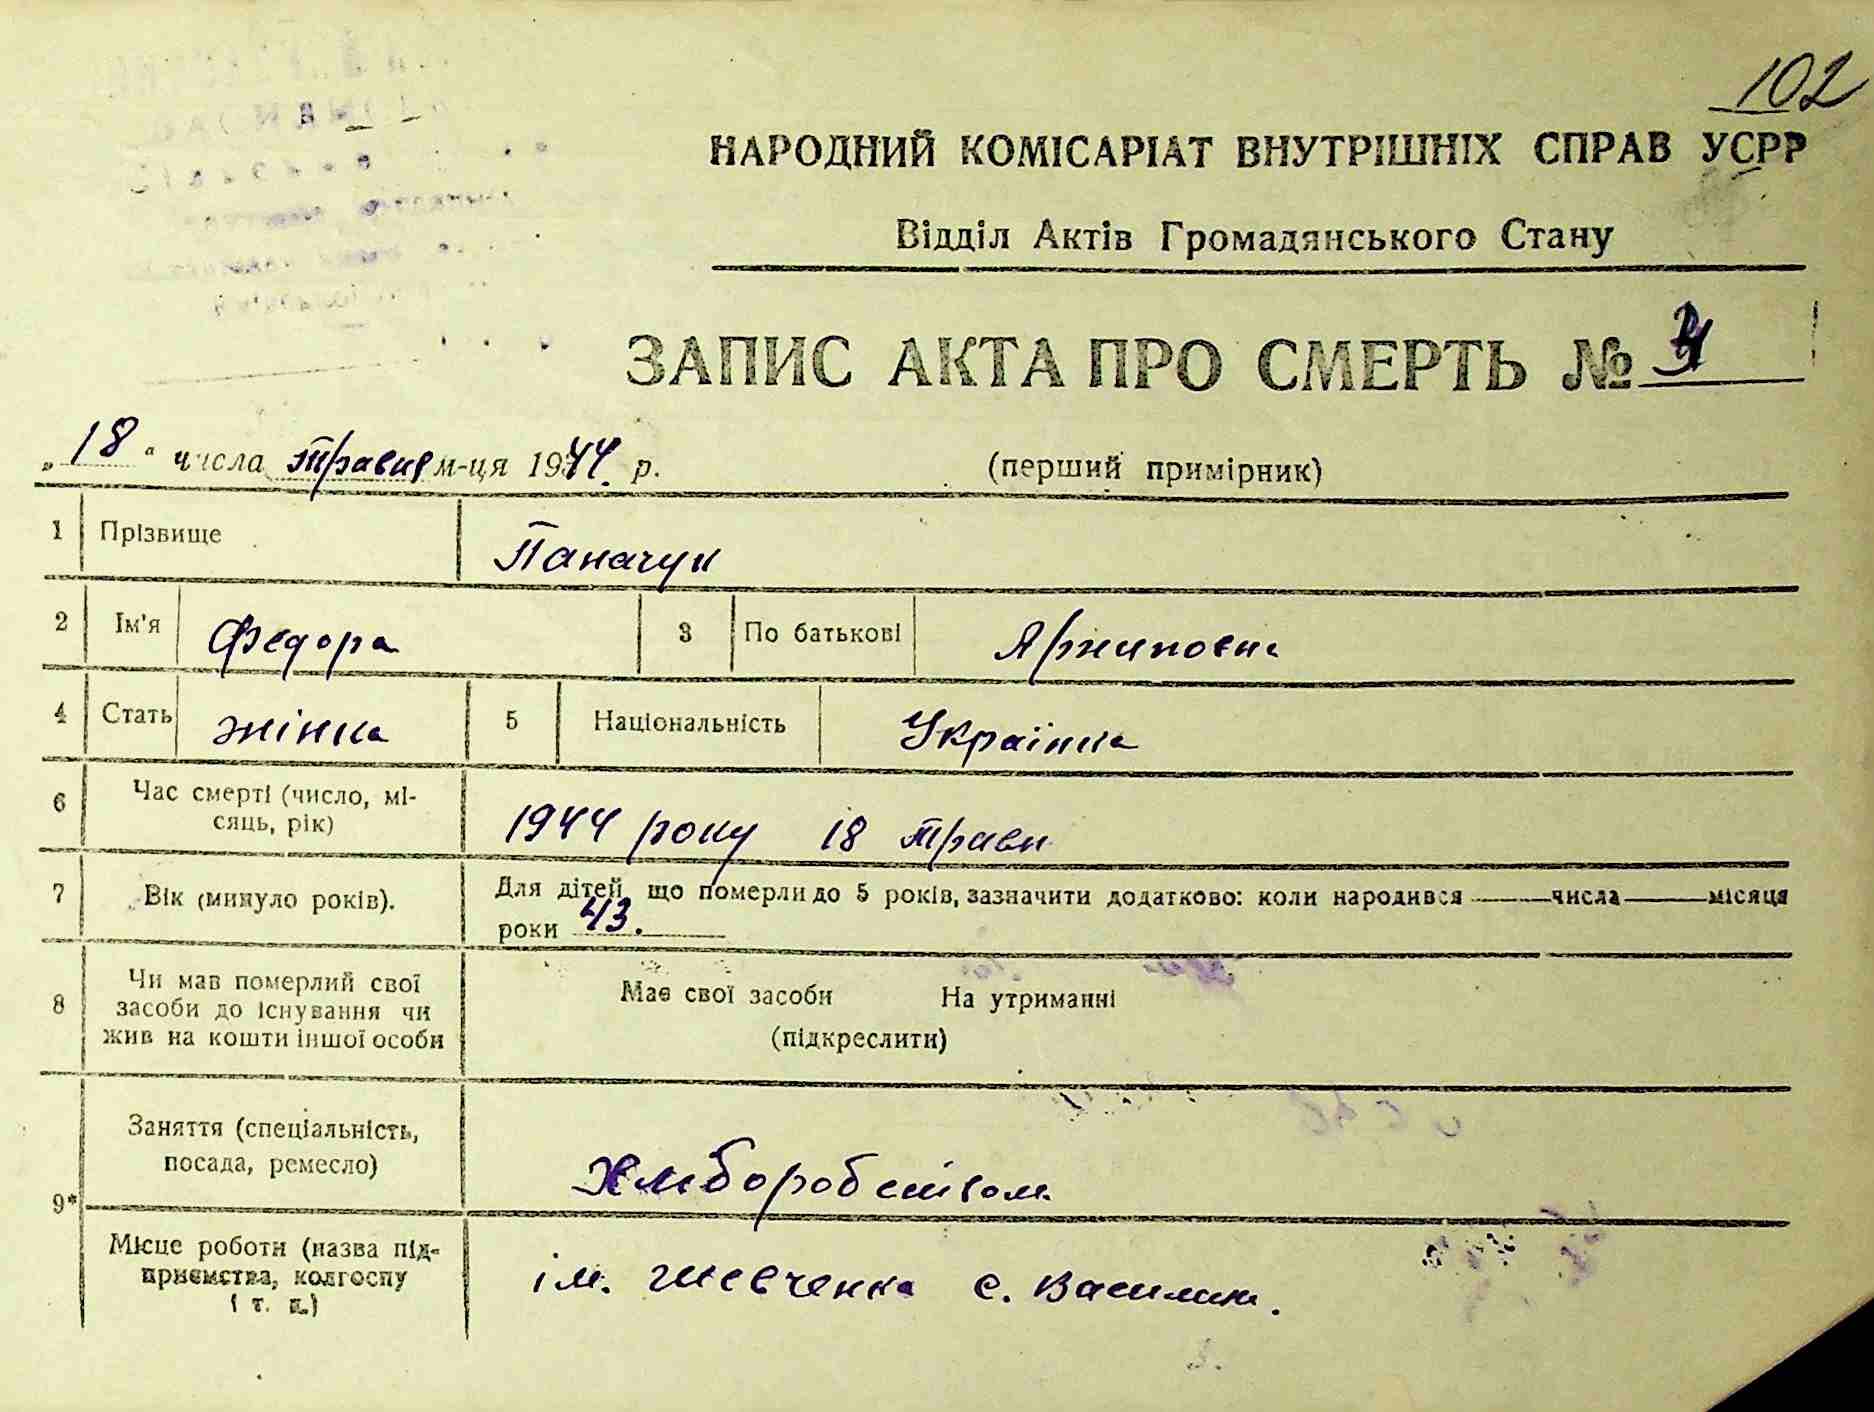 102
НАРОДНИЙ КОМІСАРІАТ ВНУТРІШНІХ СПРАВ УСРР
Відділ Актів Громадянського Стану
ЗАПИС АКТА ПРО СМЕРТЬ №
„18“ числа травня м-ця 1944 р. (перший примірник)
1 Прізвище Паначук
2 Ім'я Федора 3 По батькові
4 Стать жінка 5 Національність Українка
6 Час смерті (число, мі-
сяць, рік) 1944 року 18 травн
7 Вік (минуло років). Для дітей, що померли до 5 років, зазначити додатково: коли народився ——числа——місяця
роки 43.
8 Чи мав померлий свої
засоби до існування чи
жив на кошти іншої особи
Має свої засоби На утриманні
(підкреслити)
9* Заняття (спеціальність,
посада, ремесло)
Місце роботи (назва під-
приємства, колгоспу
і т. п.)
ім. Шевченка с.